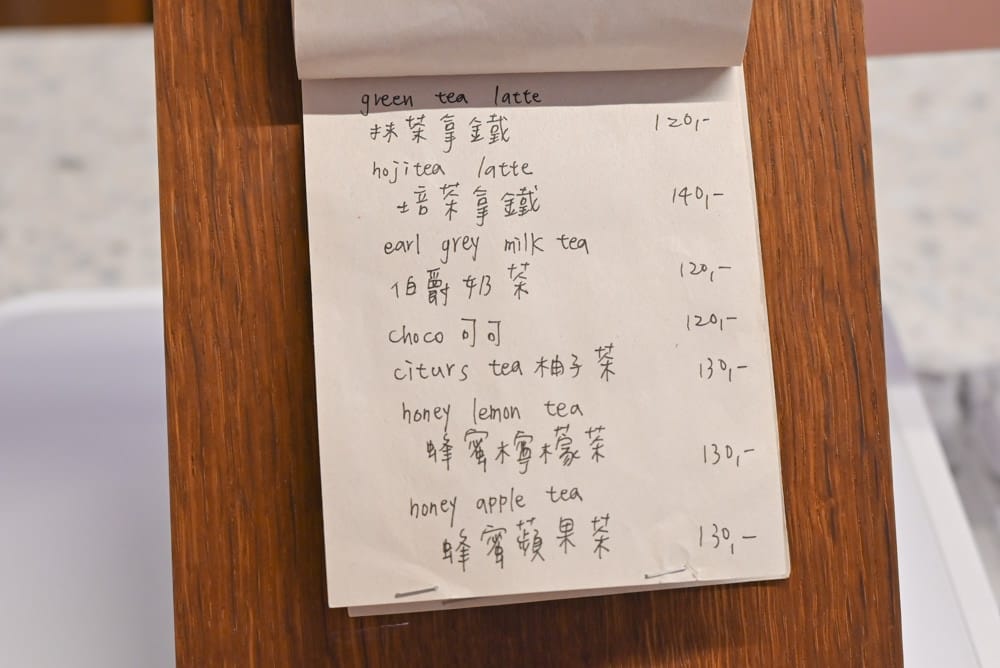 green tea latte
抹茶拿鐵 120,-
hojitea latte
培茶拿鐵 140,-
earl grey milk tea
伯爵奶茶 120,-
choco 可可 120,-
citurs tea 柚子茶 130,-
honey lemon tea
蜂蜜檸檬茶 130,-
honey apple tea
蜂蜜蘋果茶 130,-